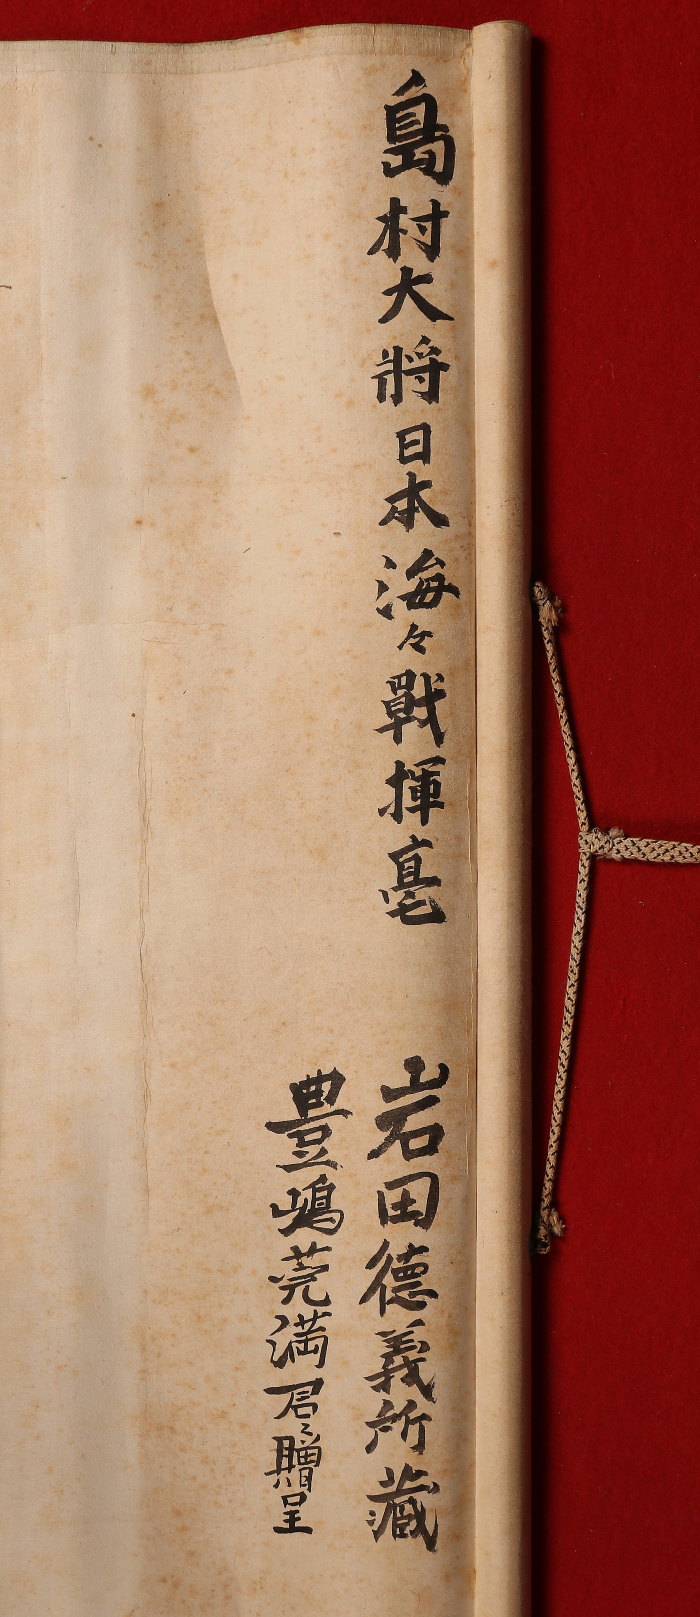 島村大將日本海々戰揮毫
岩田德義所藏
豊嶋莞満君ゟ贈呈